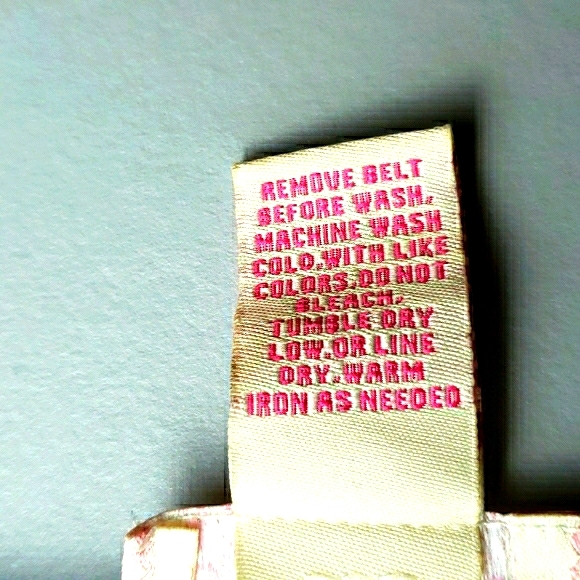 REMOVE BELT
BEFORE WASH,
MACHINE WASH
COLD,WITH LIKE
COLORS,DO NOT
BLEACH,
TUMBLE DRY
LOW,OR LINE
DRY,WARM
IRON AS NEEDED